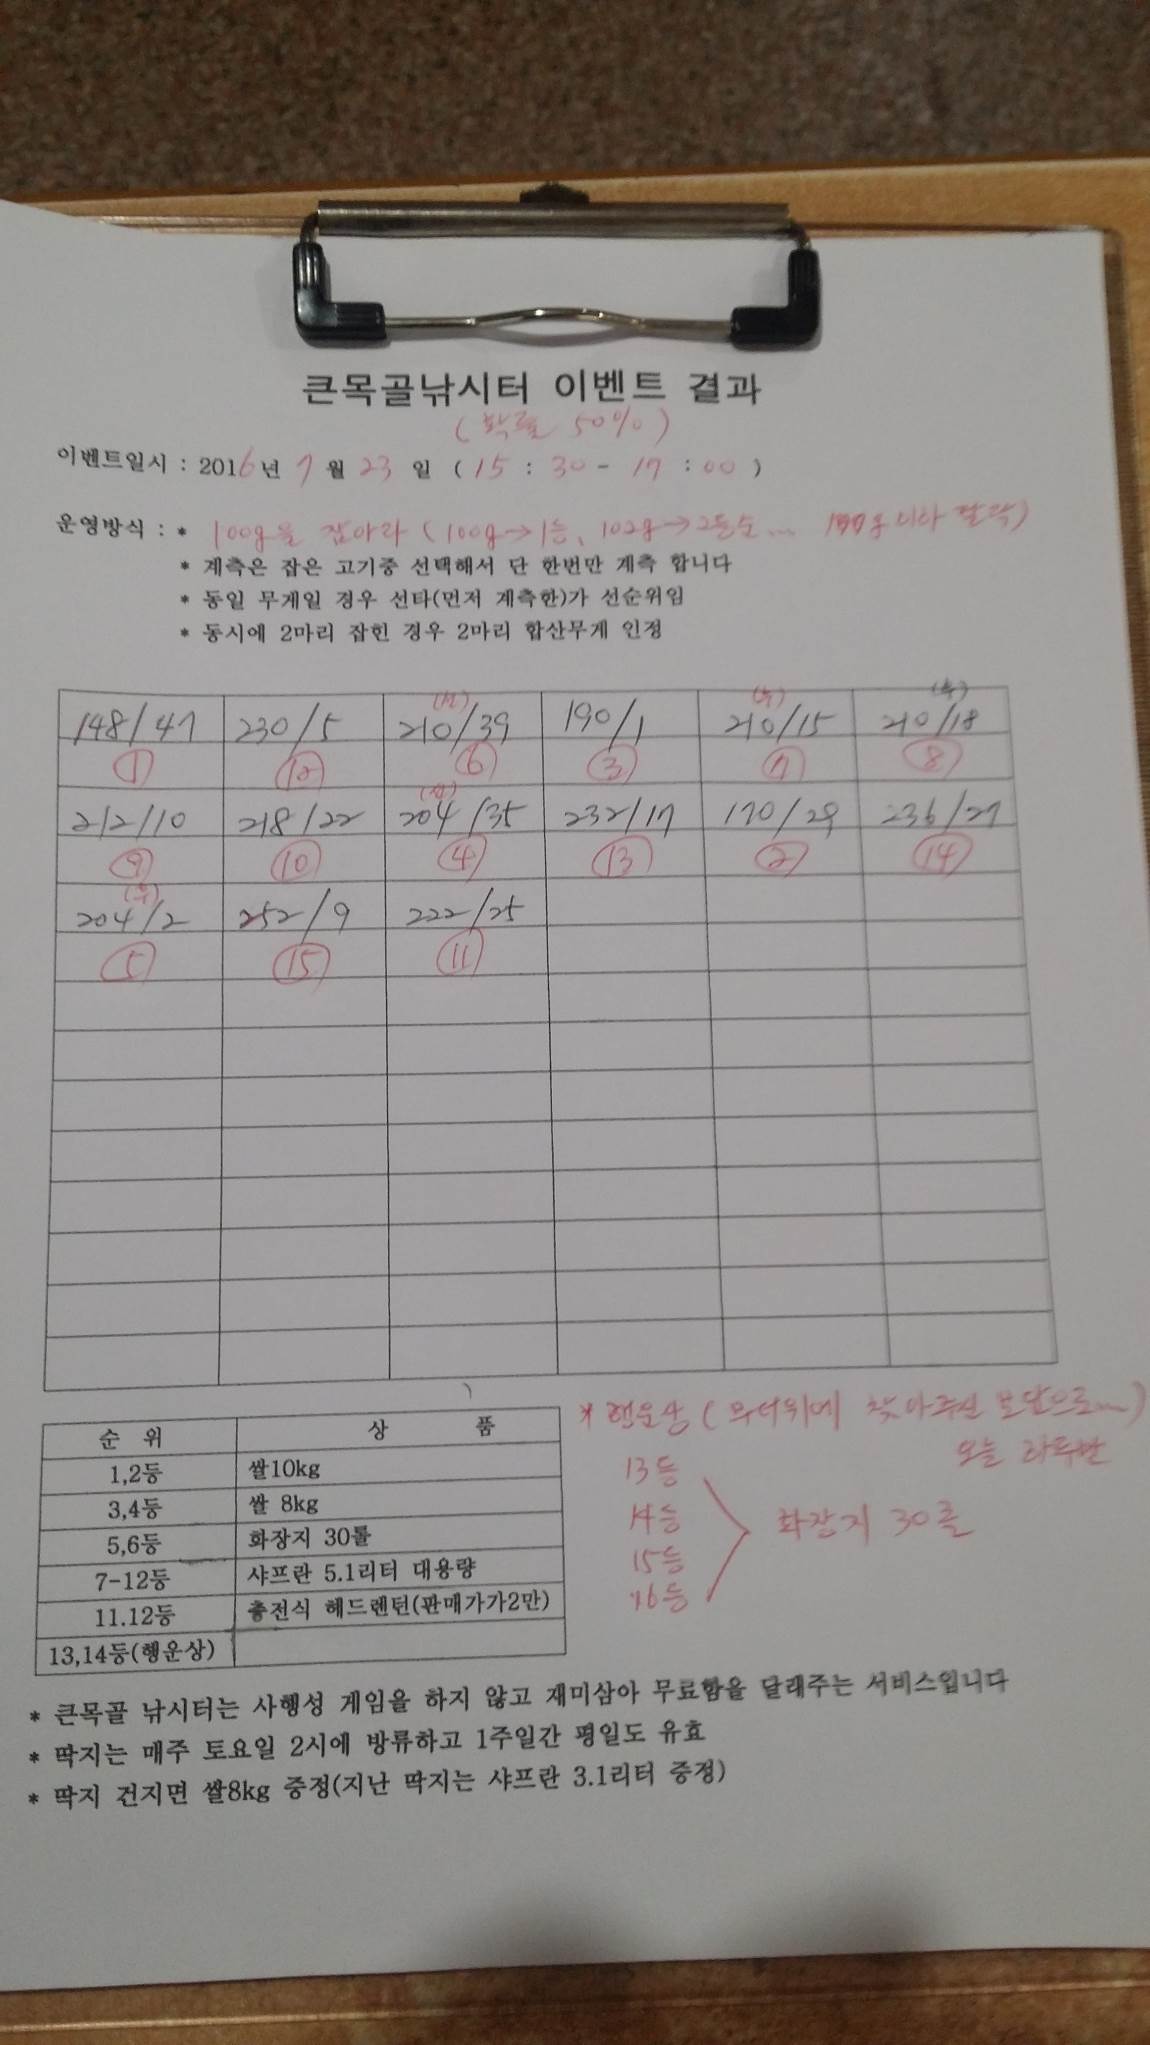 큰목골낚시터 이벤트 결과
(확률 50%)
이벤트일시 : 2016년 7월 23일 (15 : 30 - 17 : 00)
운영방식 : * 100g을 잡아라 (100g→1등, 102g→2등순...
* 계측은 잡은 고기중 선택해서 단 한번만 계측 합니다
* 동일 무게일 경우 선타(먼저 계측한)가 선순위임
* 동시에 2마리 잡힌 경우 2마리 합산무게 인정
(선) (후) (후)
148/47 230/5 210/39 190/1 210/15 210/18
① ⑫ ⑥ ③ ⑦ ⑧
(선)
212/10 218/22 204/35 232/17 170/29 236/27
⑨ ⑩ ④ ⑬ ② ⑭
(후)
204/2 252/9 222/25
⑤ ⑮ ⑪
순 위 상 품
1,2등 쌀10kg
3,4등 쌀 8kg
5,6등 화장지 30롤
7-12등 샤프란 5.1리터 대용량
11.12등 충전식 헤드렌턴(판매가가2만)
13,14등(행운상)
* 행운상 (무더위에 찾아주신 보답으로...)
오늘
13등
14등
15등
16등
화장지 30롤
* 큰목골 낚시터는 사행성 게임을 하지 않고 재미삼아 무료함을 달래주는 서비스입니다
* 딱지는 매주 토요일 2시에 방류하고 1주일간 평일도 유효
* 딱지 건지면 쌀8kg 증정(지난 딱지는 샤프란 3.1리터 증정)